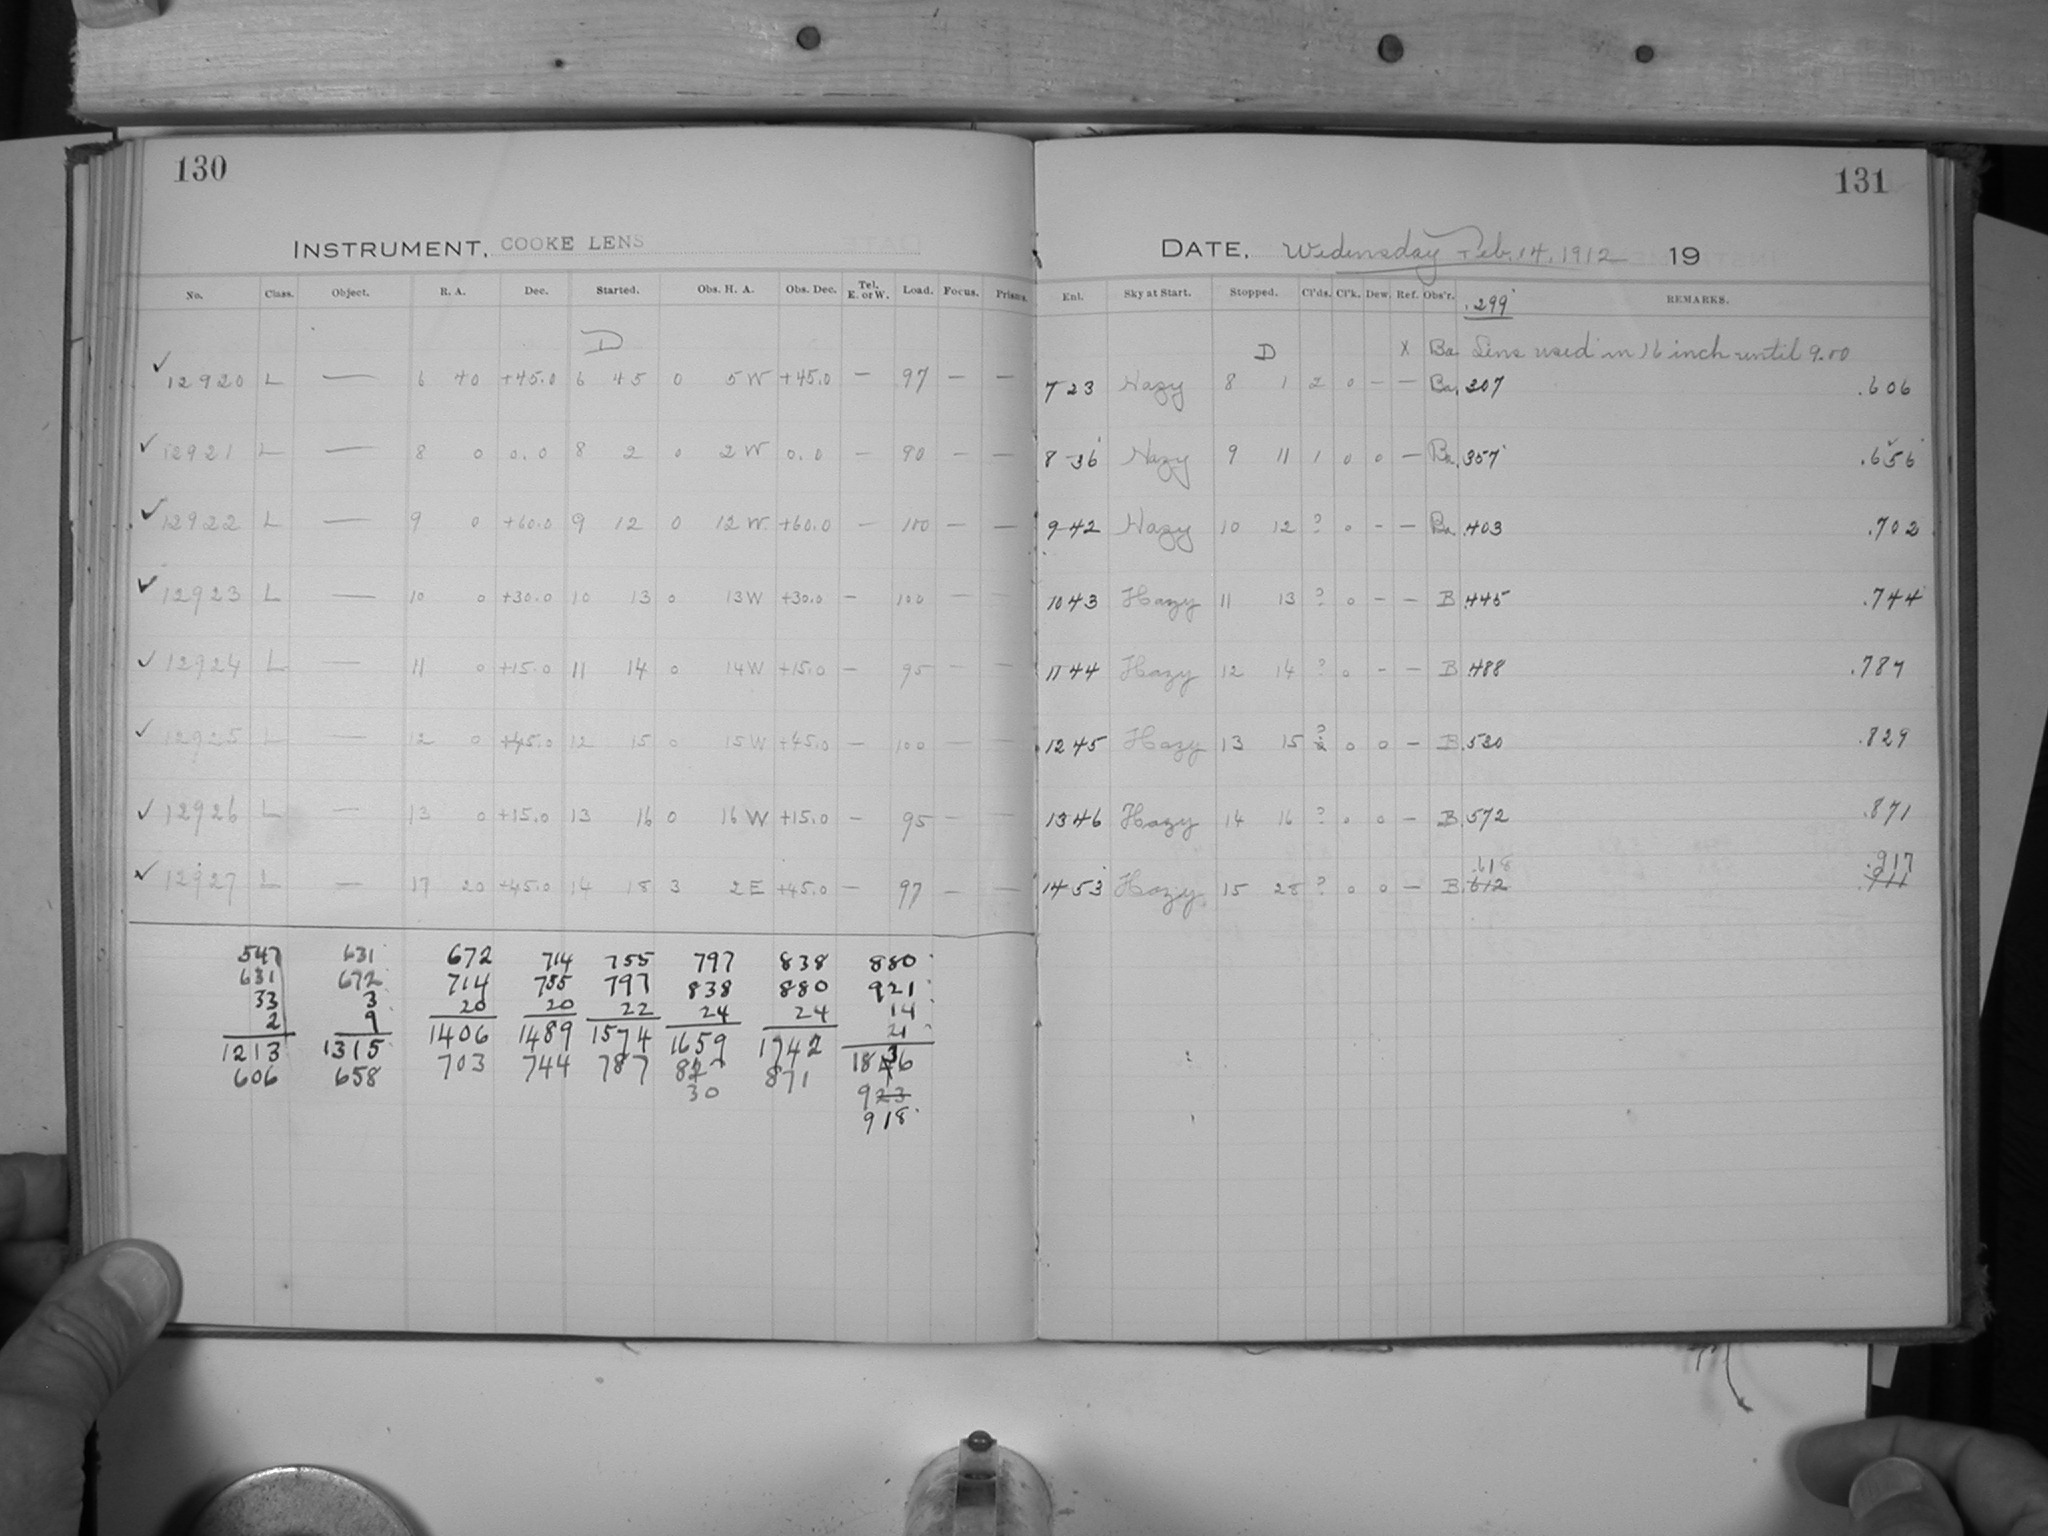 130
INSTRUMENT, COOKE LENS
No. Class. Object. R. A. Dec. Started. Obs. H. A. Obs. Dec. Tel. E. or W. Load. Focus. Prisms.
D
✓ 12920 L — 6 40 +45.0 6 45 0 5 W +45.0 — 97 — —
✓ 12921 L — 8 0 0.0 8 2 0 2 W 0.0 — 90 — —
✓ 12922 L — 9 0 +60.0 9 12 0 12 W. +60.0 — 100 — —
✓ 12923 L — 10 0 +30.0 10 13 0 13 W +30.0 — 100 — —
✓ 12924 L — 11 0 +15.0 11 14 0 14 W +15.0 — 95 — —
✓ 12925 L — 12 0 +45.0 12 15 0 15 W +45.0 — 100 — —
✓ 12926 L — 13 0 +15.0 13 16 0 16 W +15.0 — 95 — —
✓ 12927 L — 17 20 +45.0 14 18 3 2 E +45.0 — 97 — —
547 631 672 714 755 797 838 880
631 672 714 755 797 838 880 921
33 3 20 20 22 24 24 14
2 9 21
1213 1315 1406 1489 1574 1659 1742 1836
606 658 703 744 787 871
30 923
918
131
DATE, Wednesday Feb. 14, 1912 19
Enl. Sky at Start. Stopped. Cl'ds. Cl'k. Dew. Ref. Obs'r. .299 REMARKS.
D X Ba Lens used in 16 inch until 9.00
7 23 Hazy 8 1 2 0 — — Ba. .307 .606
8 36 Hazy 9 11 1 0 0 — Ba. .357 .656
9 42 Hazy 10 12 ? 0 — — Ba. .403 .702
10 43 Hazy 11 13 ? 0 — — B .445 .744
11 44 Hazy 12 14 ? 0 — — B .488 .787
12 45 Hazy 13 15 ? 0 0 — B .530 .829
13 46 Hazy 14 16 ? 0 0 — B .572 .871
.618 .917
14 53 Hazy 15 28 ? 0 0 — B .612 .911